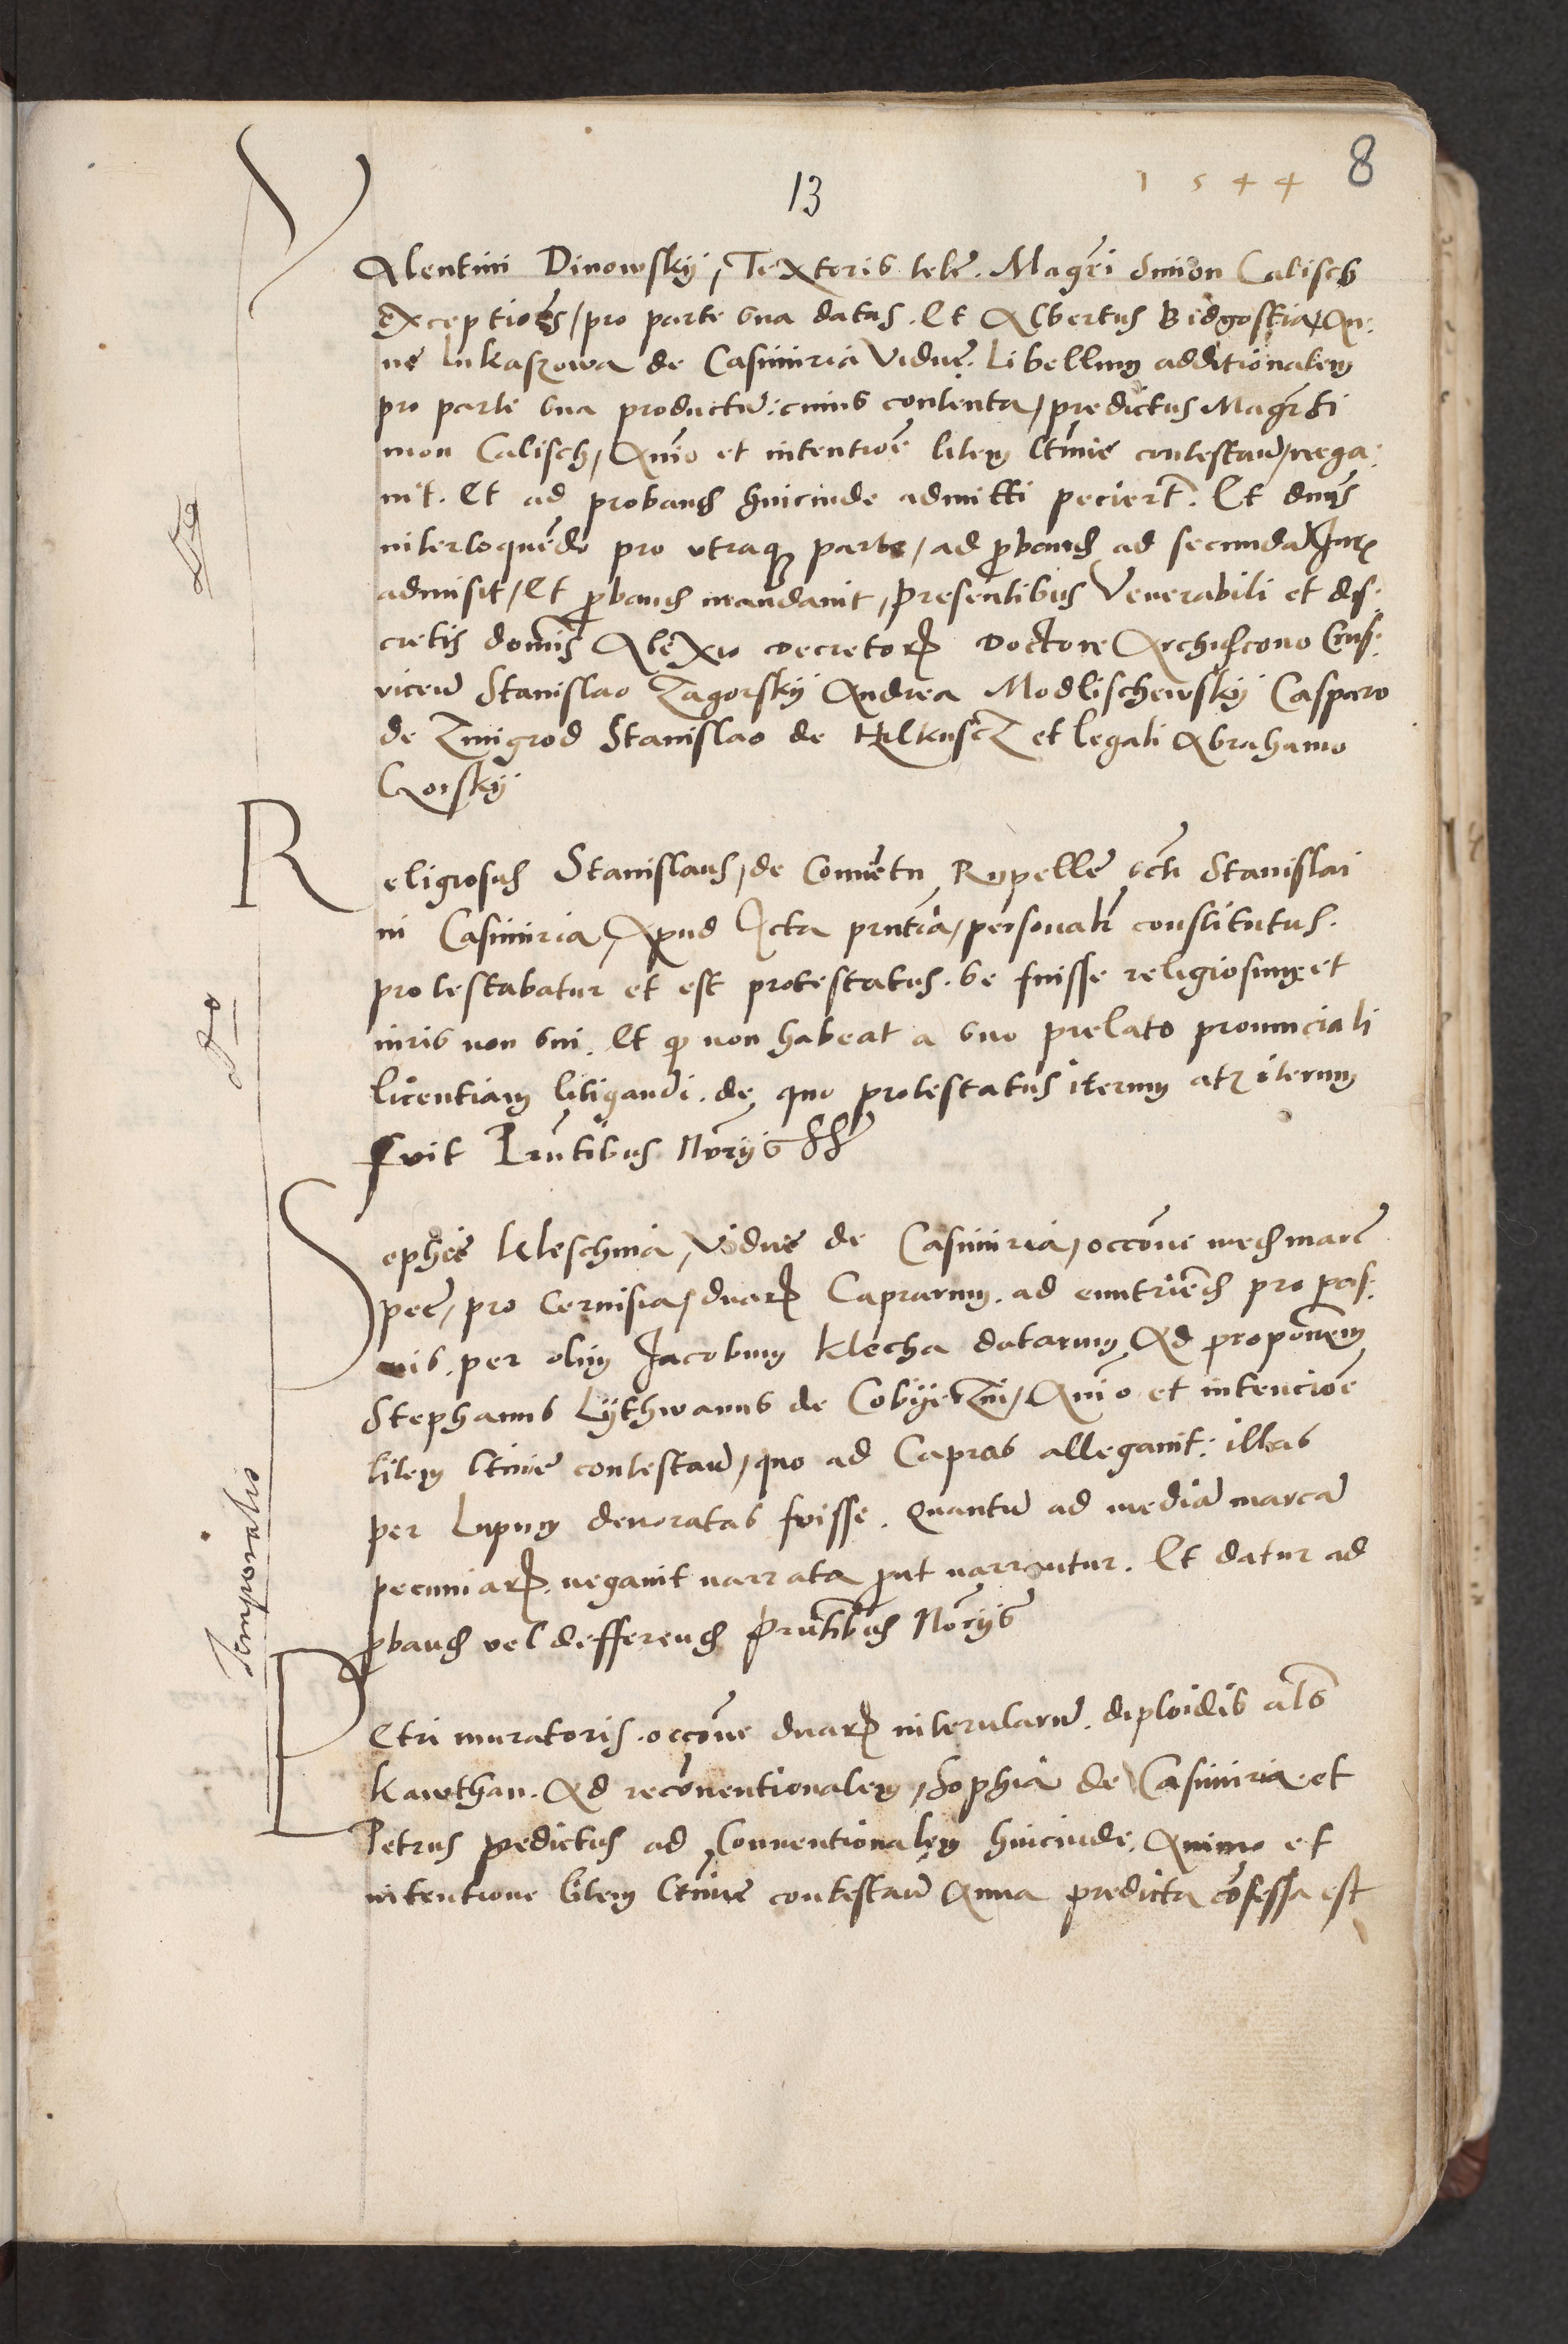 13
1544
8
Valentini Dinowskÿ, Textoris telē. Magr̄i Simon Calisch
exceptiōēs, pro parte sua datas. Et Albertus Bidgostia, An:
nē Lukaszowa de Casimiria Viduę. Libellum additionalem
pro parte sua productū: cuius contenta, predictus Magr̄ Si
mon Calisch, Aīo et intentiōē litem ltīmē contestan̄, nega:
uit. Et ad proband hincinde admitti peciert̄. Et dn̄s
interloquēdo pro vtraq parte, ad proband ad secundā Jur
admisit, Et proband mandauit, presentibus Venerabili et dis:
cretis domīs Alexio decretor Doctore Archidiacono
Stanislao Zagorskÿ Andrea Modlischewskÿ Casparo
de Zmigrod Stanislao de Hilkuscz et legali Abrahamo
Gorskÿ
Religiosus Stanislaus, de Conuētu Rupellē scti Stanislai
in Casimiria, Apud Acta prn̄tia, personalr̄ constitutus.
protestabatur et est protestatus. se fuisse religiosum et
iuris non sui. Et q non habeat a suo prelato prouinciali
licentiam litigandi. de quo protestatus iterum atq iterum
fuit Prn̄tibus Norÿs
Sophiē Kleschina, Viduē de Casimiria, occōne med marcē
pec̄, pro Ceruisia, duar Caprarum. ad enutriēd pro
per olim Jacobum Klecha datarum Ad proponem
Stephanus Lÿthwanus de Aīo et intenciōē
litem ltīmē contestan̄, quo ad Capras allegauit: illas
per Lupum deuoratas fuisse. Quantū ad mediā marcā
pecuniar. negauit narrata put narrantur. Et datur ad
pband vel defferend Prn̄tibus Norÿs
Petri muratoris. occōne duar interularū. diploidis als
Kawthan. Ad reconuentionalem, Sophia de Casimiria et
Petrus predictus ad Conuentionalem hincinde. Animo et
intentione litem ltīmē contestan̄ Anna predicta cōfessa est
Temporalis